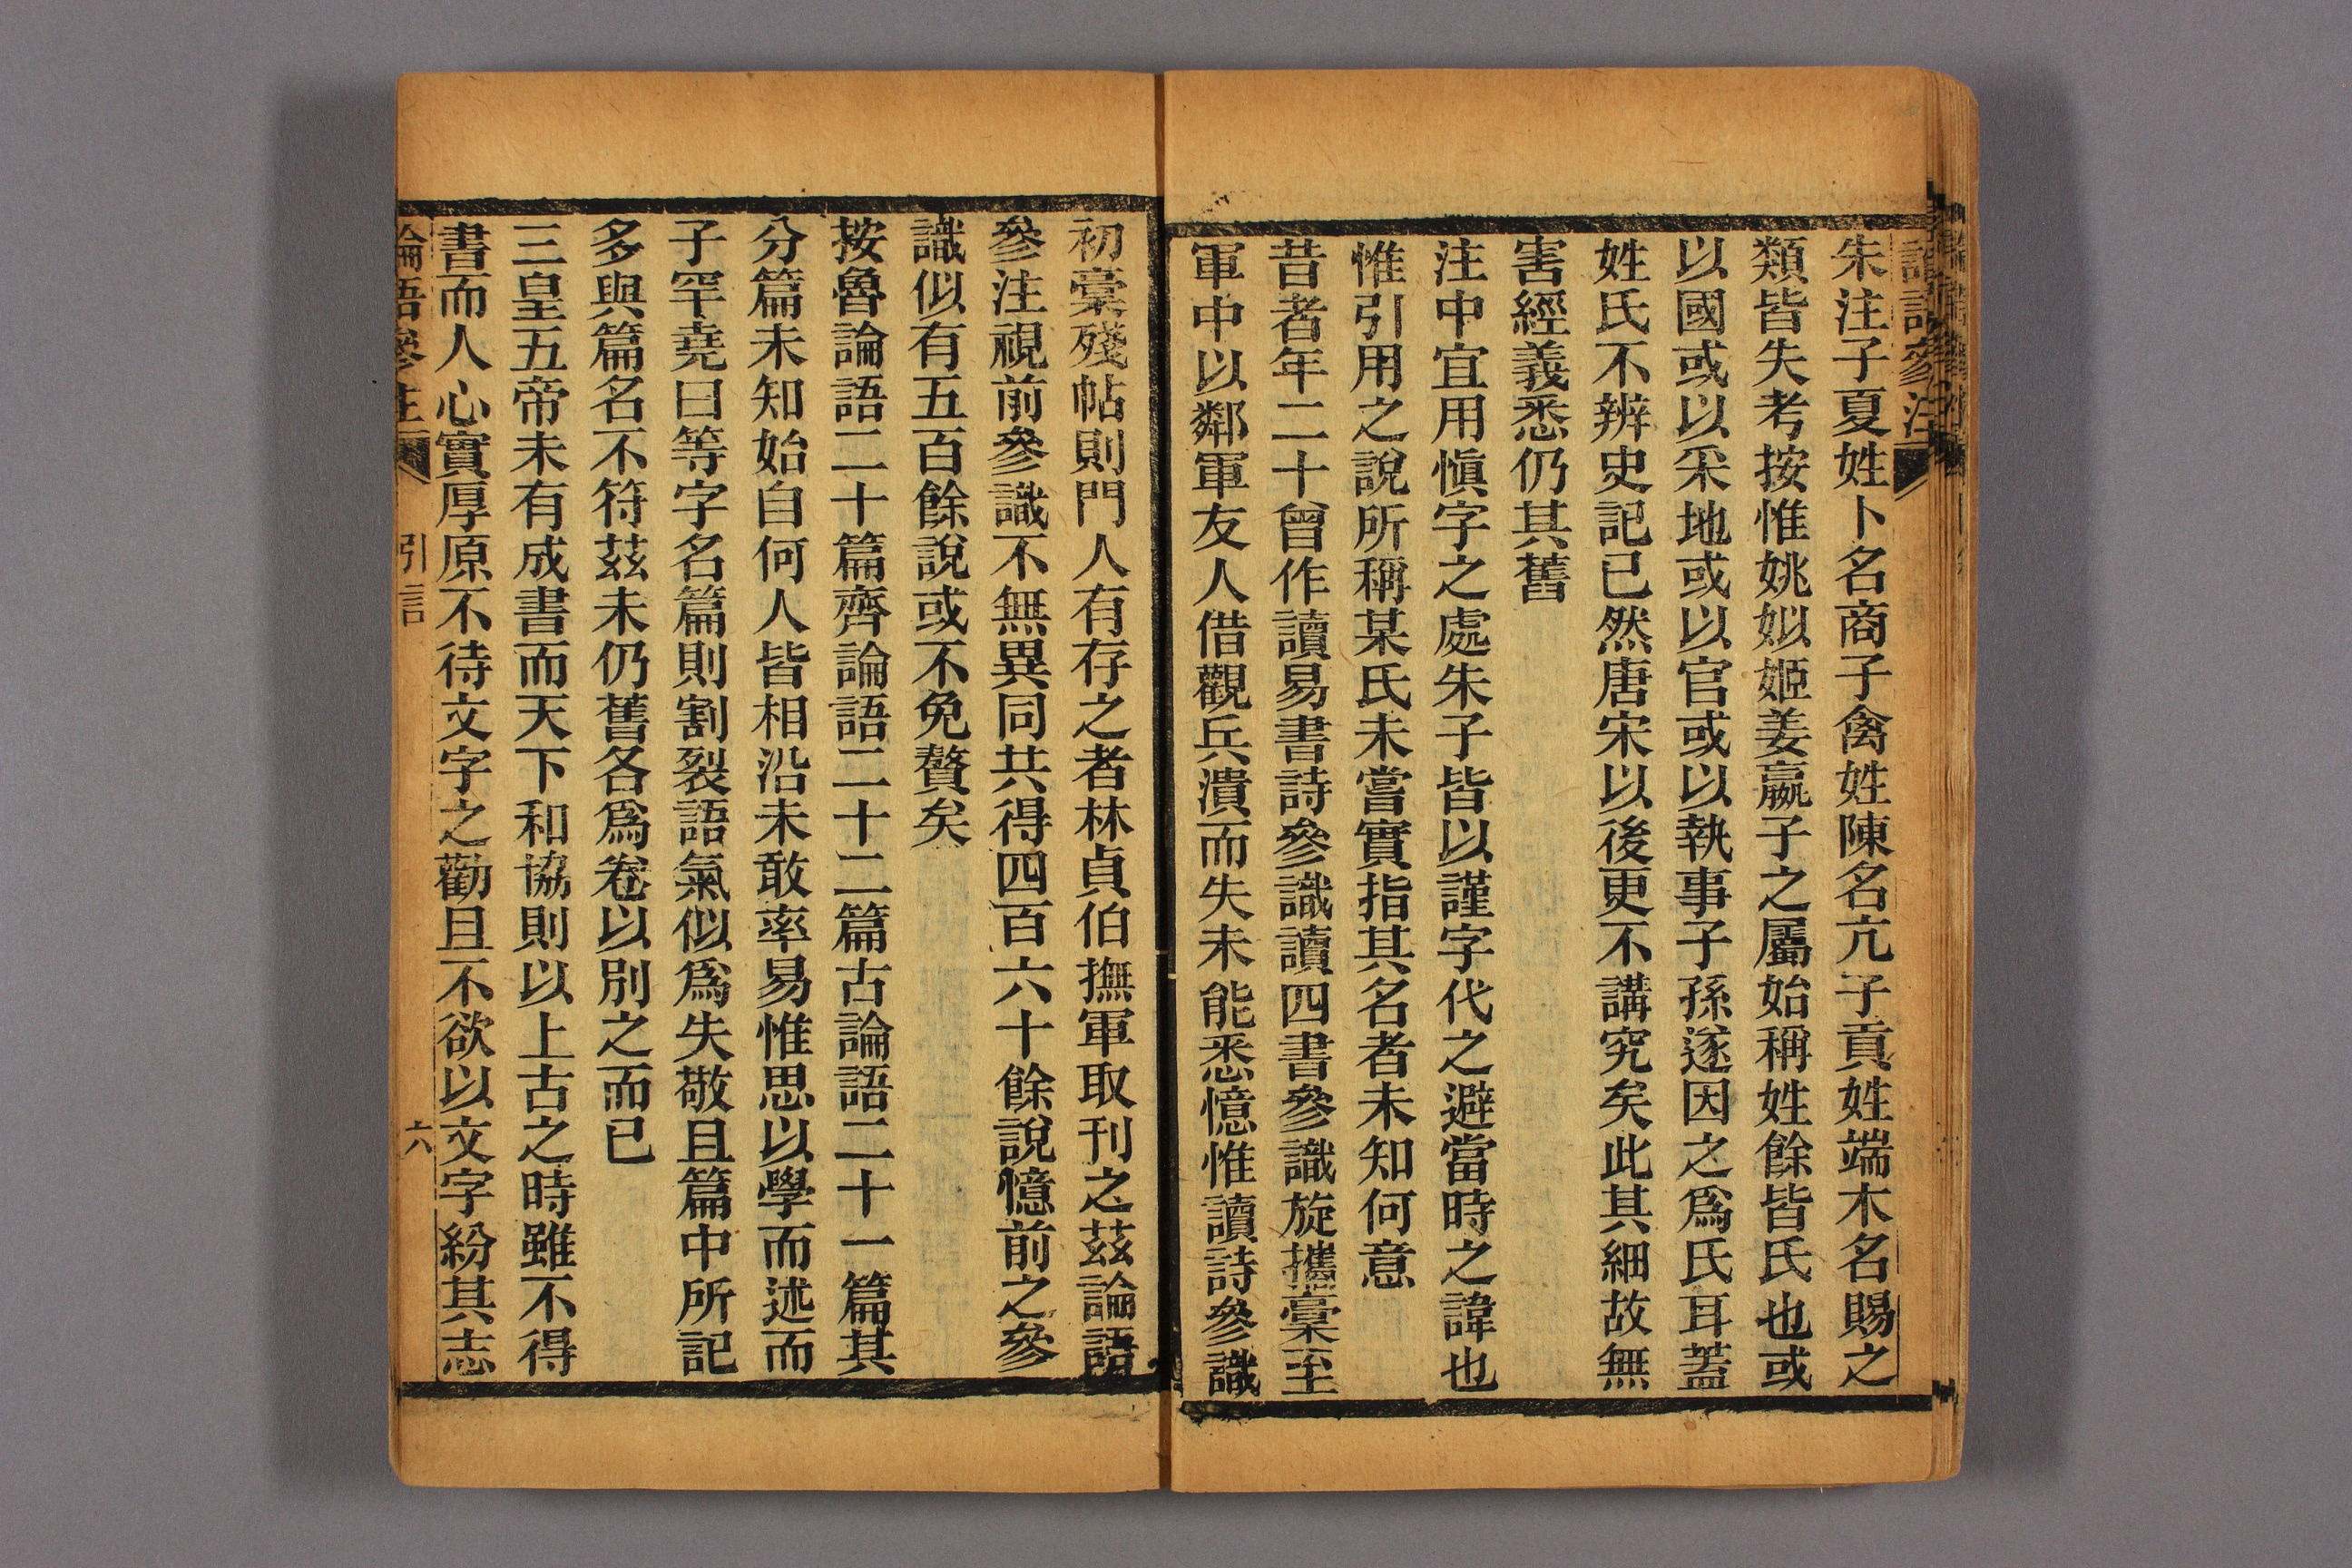 朱注子夏姓卜名商子禽姓陳名亢子貢姓端木名賜之
類皆失考按惟姚姒姬姜嬴子之屬始稱姓餘皆氏也或
以國或以采地或以官或以執事子孫遂因之爲氏耳蓋
姓氏不辨史記已然唐宋以後更不講究矣此其細故無
害經義悉仍其舊
注中宜用愼字之處朱子皆以謹字代之避當時之諱也
惟引用之說所稱某氏未嘗實指其名者未知何意
昔者年二十曾作讀易書詩參識讀四書參識旋攜稾至
軍中以鄰軍友人借觀兵潰而失未能悉憶惟讀詩參識
初稾殘帖則門人有存之者林貞伯撫軍取刊之茲論語
參注視前參識不無異同共得四百六十餘說憶前之參
識似有五百餘說或不免贅矣
按魯論語二十篇齊論語二十二篇古論語二十一篇其
分篇未知始自何人皆相沿未敢率易惟思以學而述而
子罕堯曰等字名篇則割裂語氣似爲失敬且篇中所記
多與篇名不符茲未仍舊各爲卷以別之而已
三皇五帝未有成書而天下和協則以上古之時雖不得
書而人心實厚原不待文字之勸且不欲以文字紛其志
論語參注 引言 六